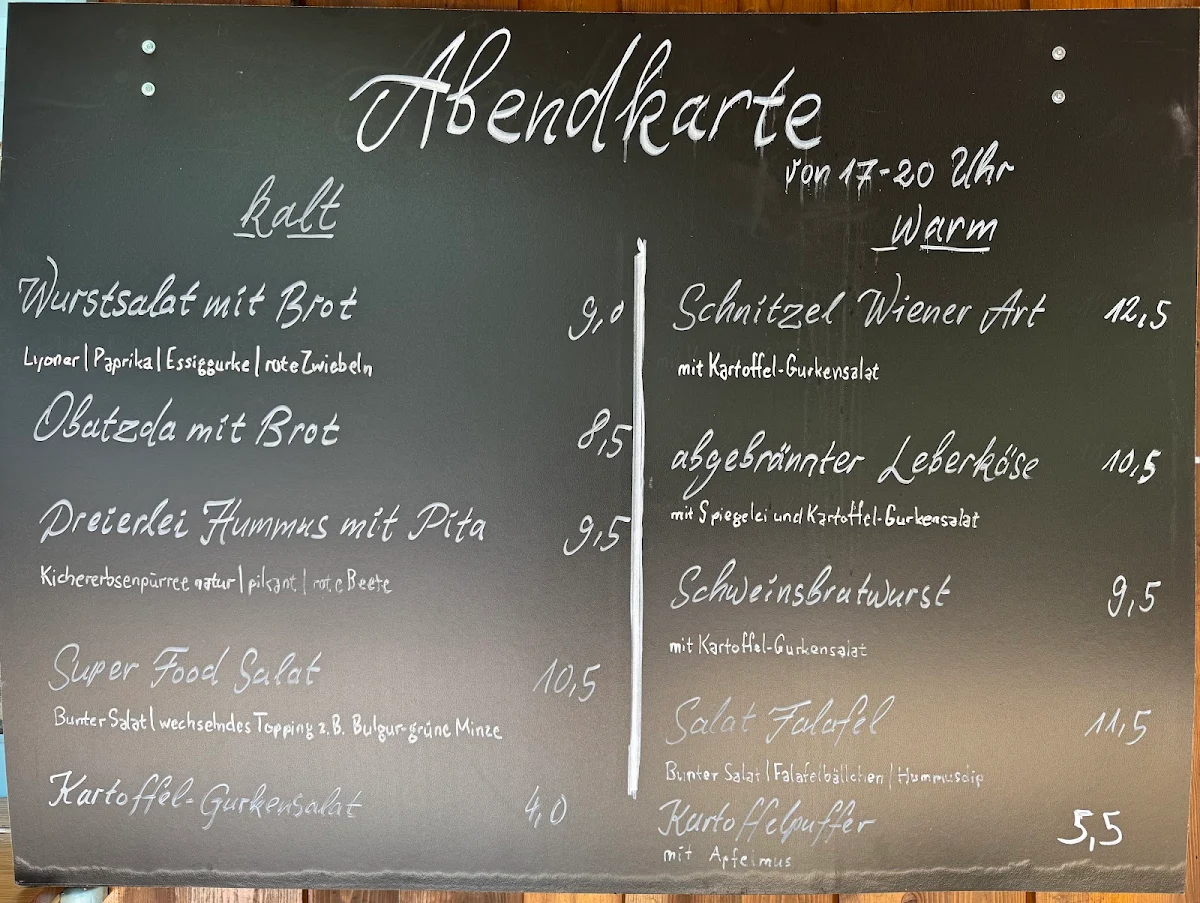 Abendkarte
von 17-20 Uhr
kalt
Wurstsalat mit Brot 9,0
Lyoner | Paprika | Essiggurke | rote Zwiebeln
Obatzda mit Brot 8,5
Dreierlei Hummus mit Pita 9,5
Kichererbsenpürree natur | pikant | rote Beete
Super Food Salat 10,5
Bunter Salat | wechselndes Topping z.B. Bulgur-grüne Minze
Kartoffel-Gurkensalat 4,0
warm
Schnitzel Wiener Art 12,5
mit Kartoffel-Gurkensalat
abgebrännter Leberköse 10,5
mit Spiegelei und Kartoffel-Gurkensalat
Schweinsbratwurst 9,5
mit Kartoffel-Gurkensalat
Salat Falafel 11,5
Bunter Salat | Falafelbällchen | Hummusdip
Kartoffelpuffer 5,5
mit Apfelmus